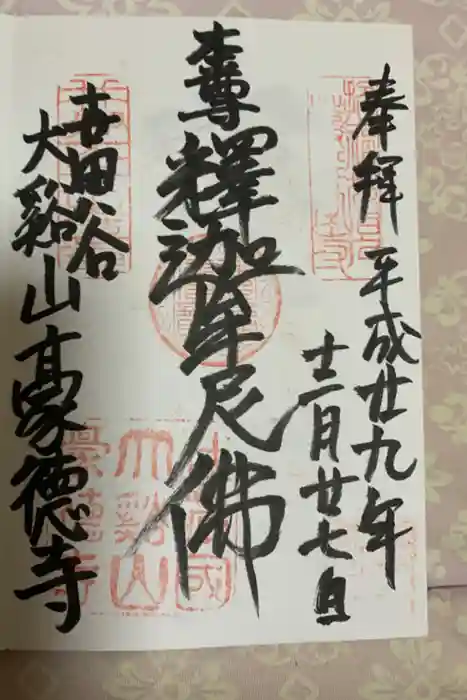 奉拝 平成廿九年
十一月廿七日
本尊釋迦牟尼佛
世田谷
大谿山豪德寺